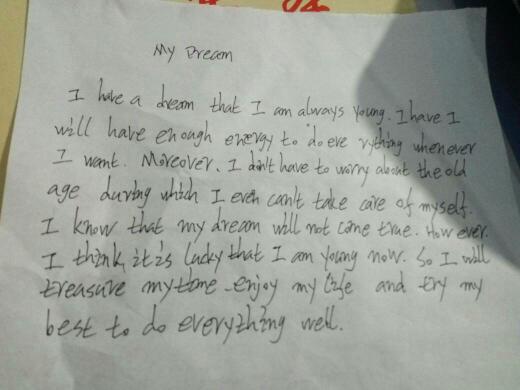 My Dream
I have a dream that I am always young. I have I
will have enough energy to do eve rything whenever
I want. Moreover, I don't have to worry about the old
age during which I even can't take care of myself.
I know that my dream will not come true. How ever.
I think it is lucky that I am young now. So I will
treasure my time enjoy my life and try my
best to do everything well.